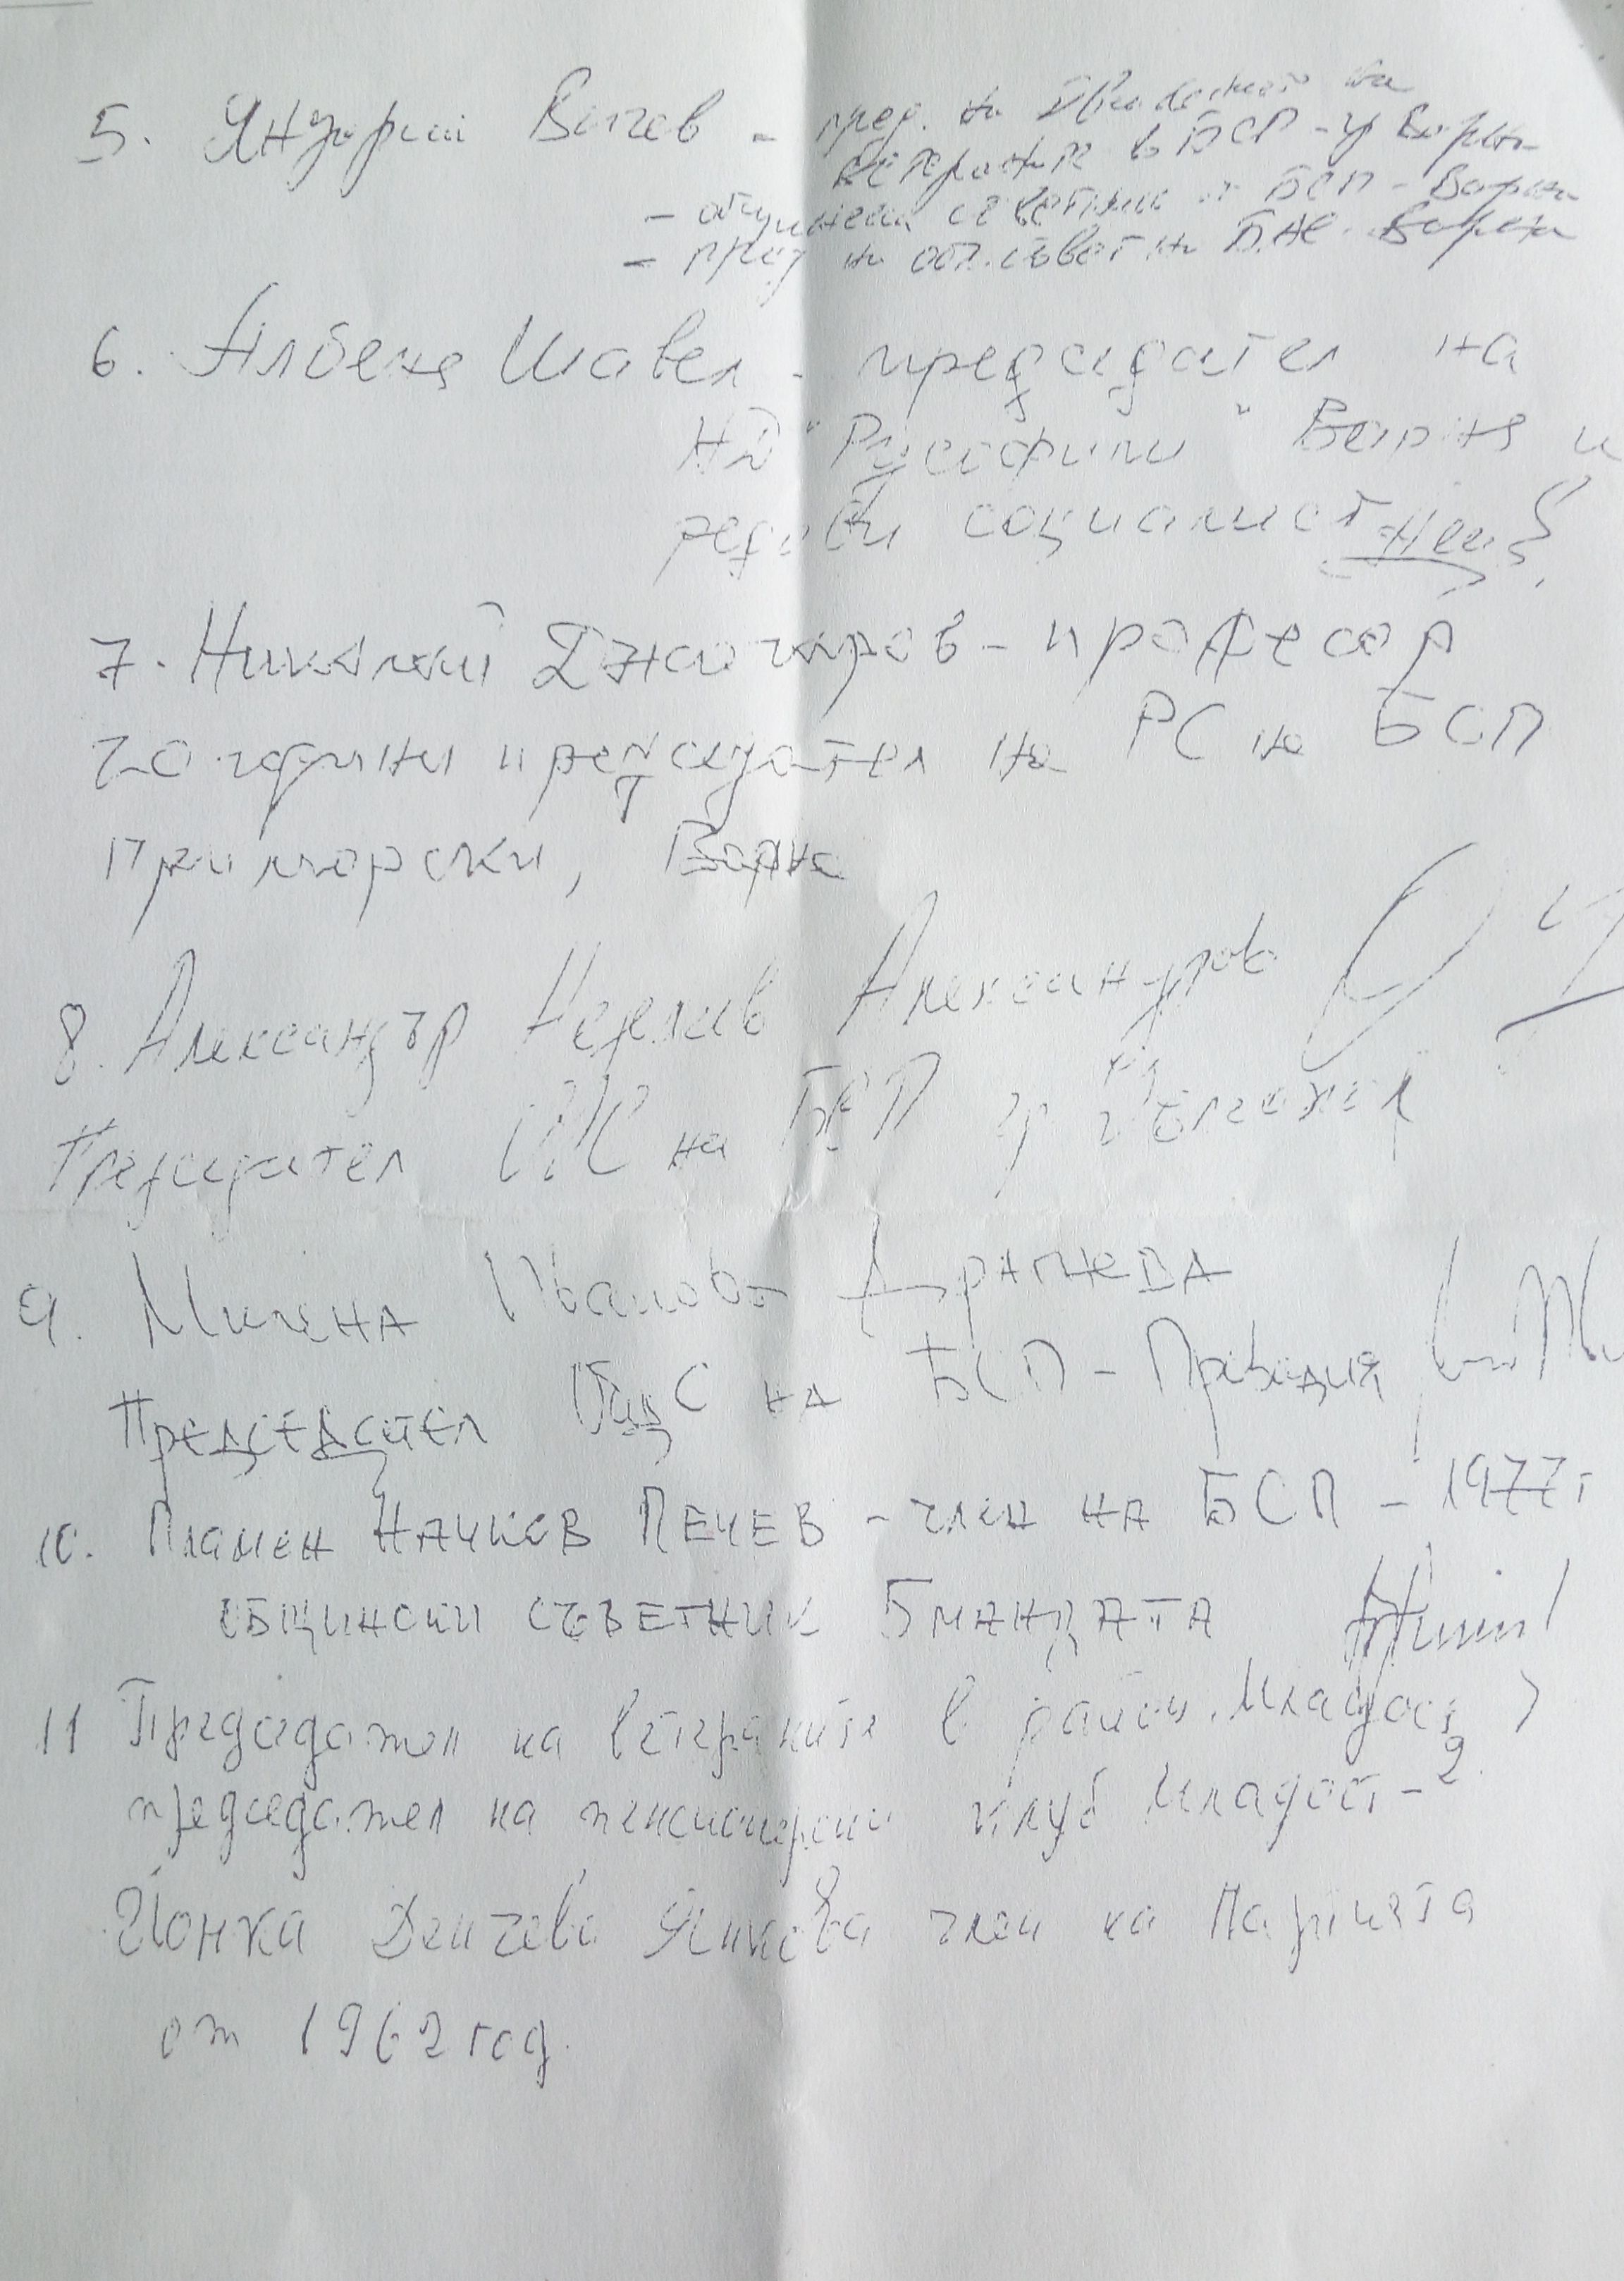 5. Януарий Вачев - пред. на на
ветераните в БСП - гр Варна
- общински съветник от БСП - Варна
- пред на общ. съвет на Варна
6. Албена Шавел - председател на
НД "Русофили" Варна и
редови социалист
7. Николай Джагаров - професор
20 години председател на РС на БСП
Приморски, Варна
8. Александър Неделчев Александров
Председател на БСП гр Долен чифлик
9. Милена Иванова Драгнева
Председател ОбщС на БСП - Провадия
10. Пламен Начков Печев - член на БСП - 1977 г
общински съветник 5 мандата
11 Председател на ветераните в район Младост
председател на пенсионерски клуб Младост - 2
Йонка Денчева Янкова член на Партията
от 1962 год.